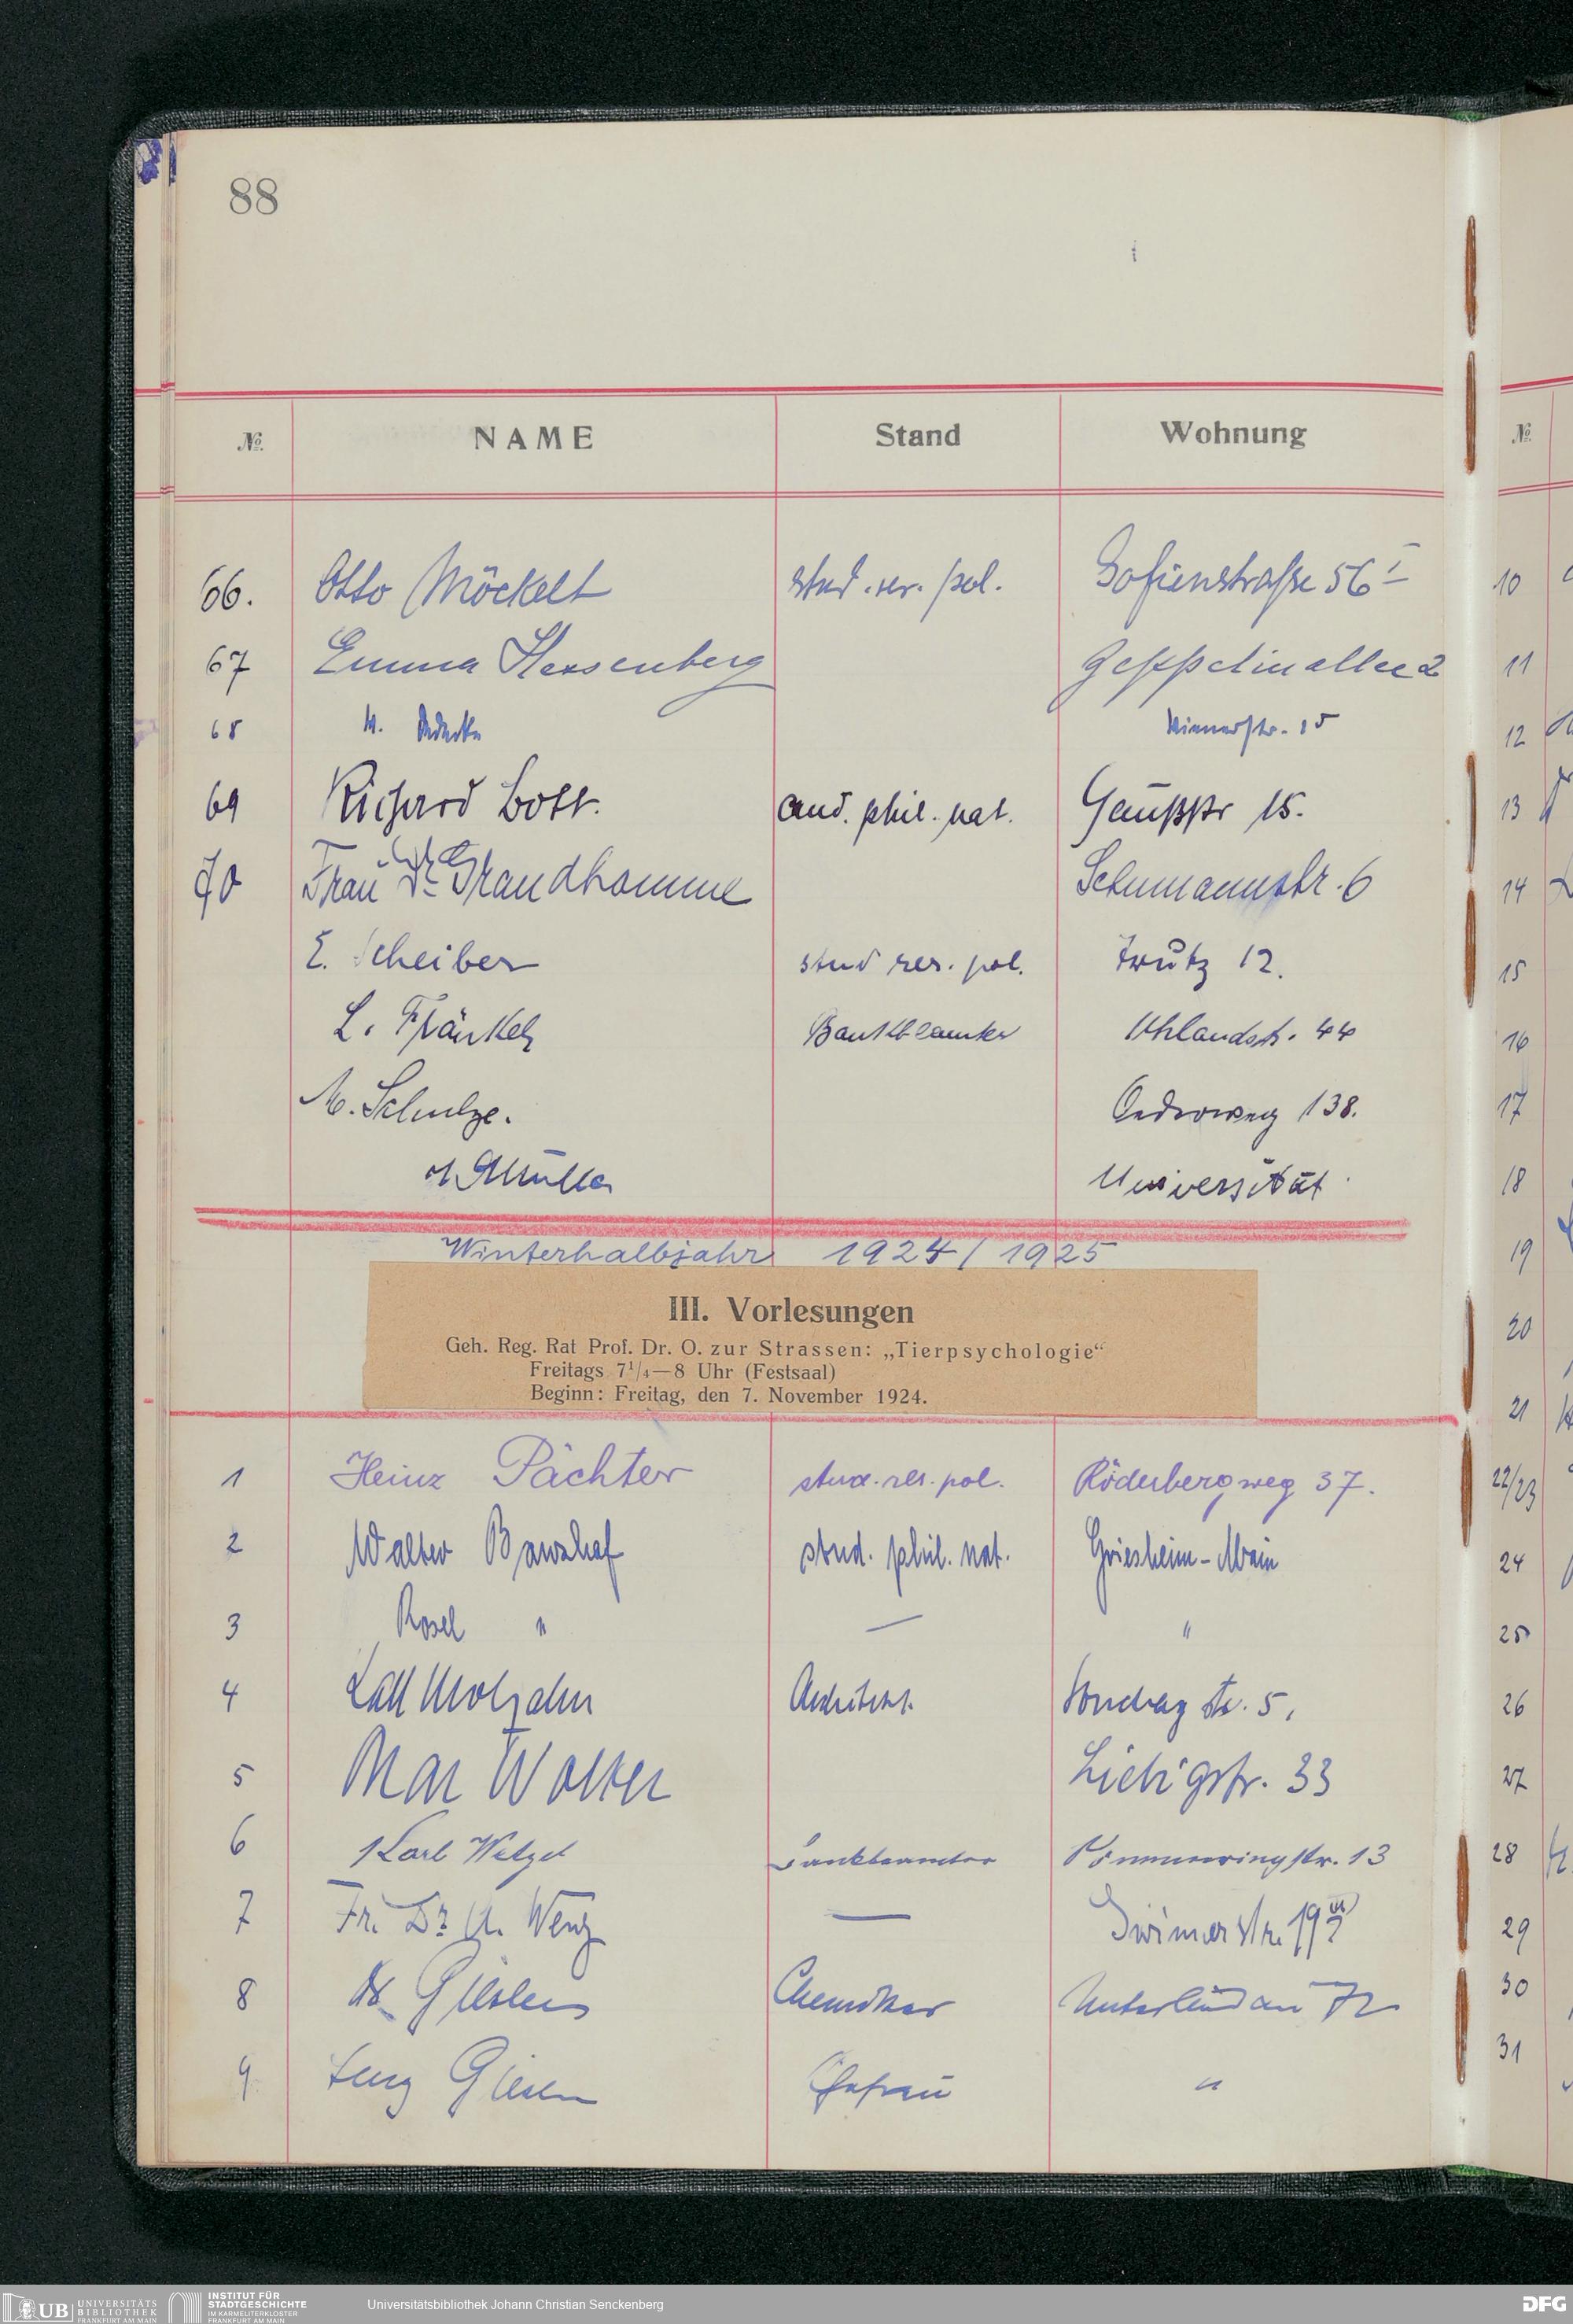 88
№ NAME Stand Wohnung №
66. Otto Möckelt stud. rer. pol. Sofienstraße 56 I
67 Emma Hessenberg Zeppelinallee 2
68 W. Wienerstr. 15
69 Richard Bott. cand. phil. nat. Gaußstr 15.
70 Frau Dr. Grandhomme Schumannstr. 6
E. Scheiber stud rer. pol. Trutz 12.
L. Fränkel Bankbeamter Uhlandstr. 44
M. Schulze. Oederweg 138.
Müller Universität
Winterhalbjahr 1924/1925
III. Vorlesungen
Geh. Reg. Rat Prof. Dr. O. zur Strassen: „Tierpsychologie“
Freitags 7¹/₄—8 Uhr (Festsaal)
Beginn: Freitag, den 7. November 1924.
1 Heinz Pächter stud. rer. pol. Röderbergweg 37.
2 Walter Banzhaf stud. phil. nat. Griesheim-Main
3 Rosel " — "
4 Karl Molzahn Architekt. str. 5,
5 Max Wolter Liebigstr. 33
6 Karl Wetzel Bankbeamter Sömmeringstr. 13
7 Fr. Dr. A. Wenz — str. 19 III
8 Dr. Chemiker Unterlindau 72
9 Ehefrau "
10
11
12
13
14
15
16
17
18
19
20
21
22/23
24
25
26
27
28
29
30
31
UB UNIVERSITÄTS BIBLIOTHEK FRANKFURT AM MAIN
INSTITUT FÜR STADTGESCHICHTE IM KARMELITERKLOSTER FRANKFURT AM MAIN
Universitätsbibliothek Johann Christian Senckenberg
DFG